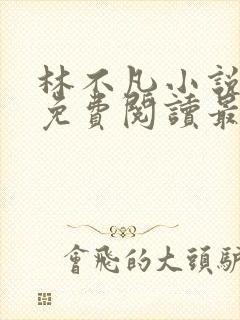 林不凡小說
免費閱讀最
會飛的大頭驢